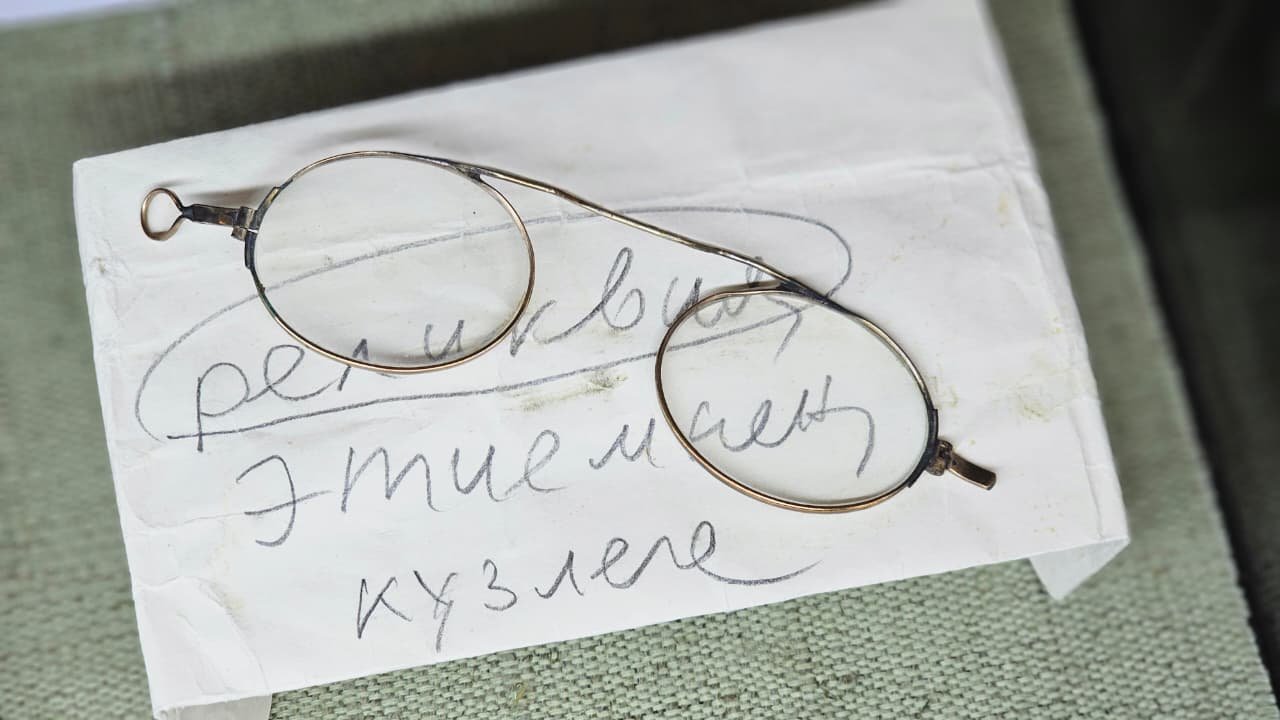 реликвия
Әтиемнең
күзлеге